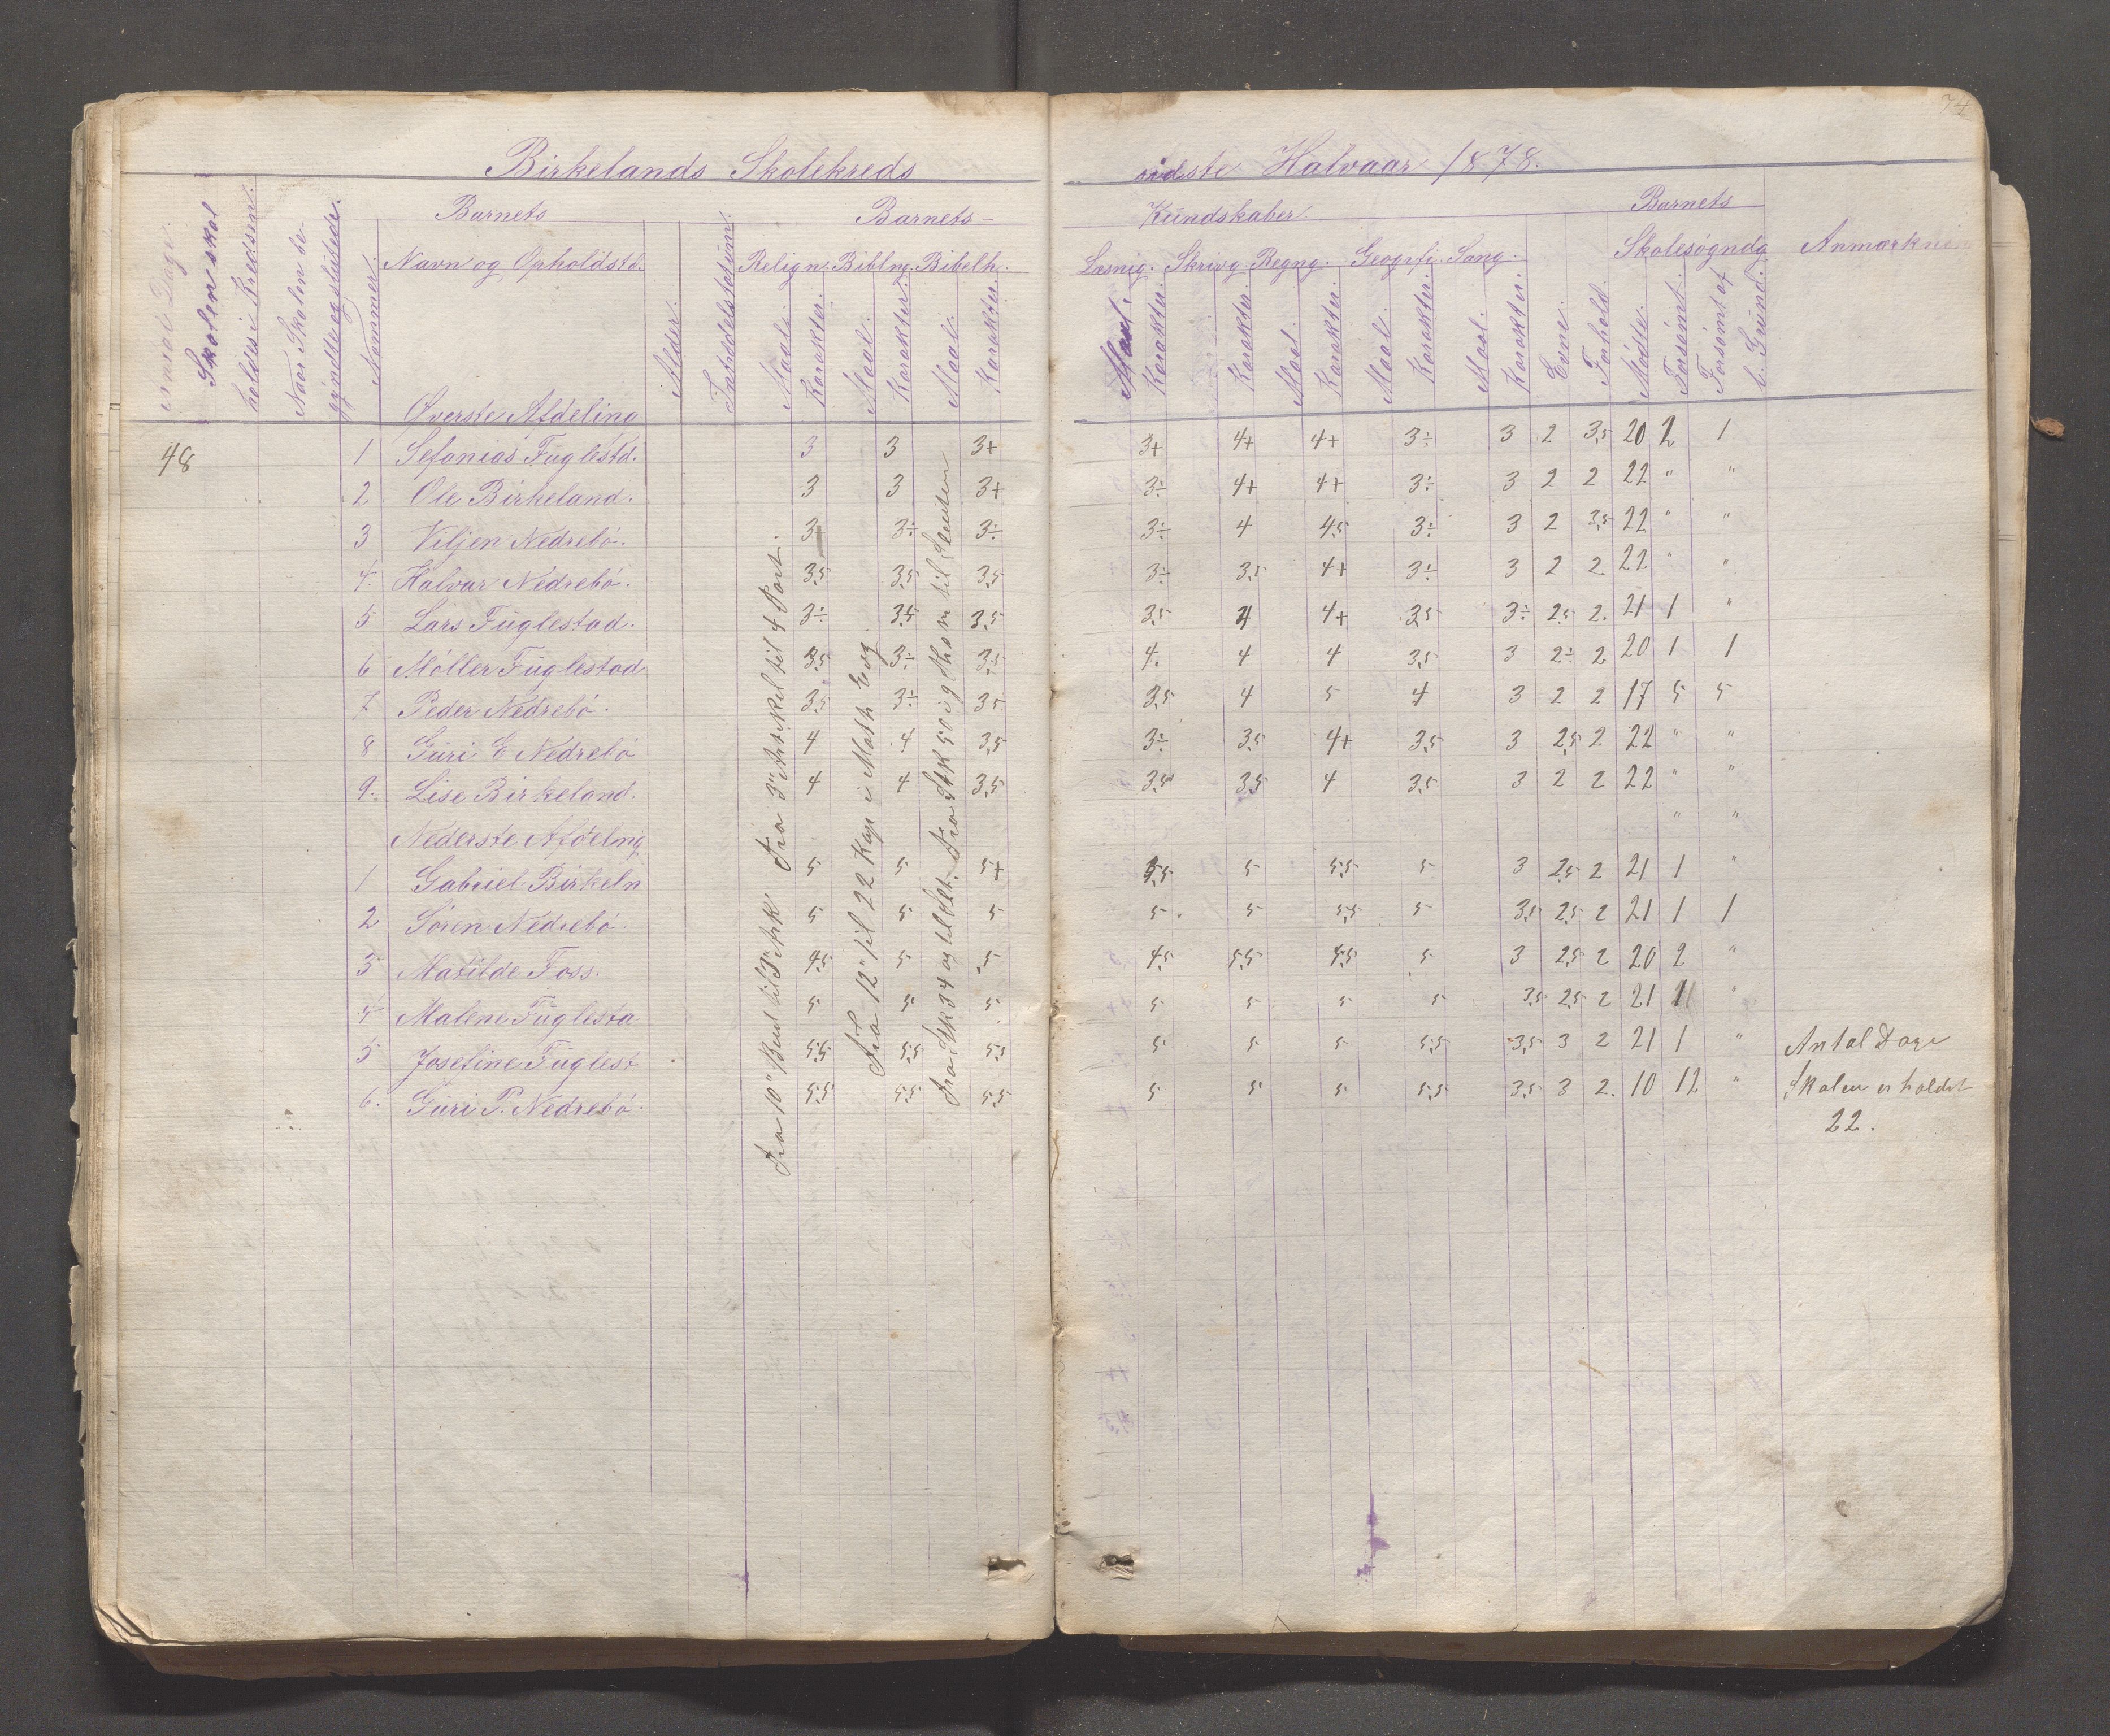 74
Birkelands Skolekreds sidste Halvaar 1878.
Antal Dage Skolen skal holdes i Kredsen.
Naar Skolen begyndte og sluttede.
Nommer.
Barnets
Navn og Opholdstd.
Alder.
Indtrædelsestid
Barnets
Kundskaber.
Barnets
Relign. Biblng. Bibelh.
Læsnig. Skrivg Regng. Geogrfi Sang.
Skolesøgndg
Anmærknin
Maal. Karakter. Maal. Karakter. Maal. Karakter.
Maal. Karakter. Karakter. Maal. Karakter. Maal. Karakter. Maal. Karakter. Evne. Forhold. Mødte. Forsømt. Forsømt af l. Grund.
Øverste Afdeling
48 1 Sefanias Fuglestd. 3 3 3+ 3+ 4+ 4+ 3÷ 3 2 3,5 20 2 1
2 Ole Birkeland. 3 3 3+ 3÷ 4+ 4+ 3÷ 3 2 2 22 " "
3 Viljen Nedrebø. 3 3÷ 3÷ 3÷ 4 4,5 3÷ 3 2 3,5 22 " "
4. Halvar Nedrebø. 3,5 3,5 3,5 3÷ 3,5 4+ 3÷ 3 2 2 22 " "
5 Lars Fuglestad. 3÷ 3,5 3,5 3,5 4 4+ 3,5 3÷ 2,5 2. 21 1 "
6 Møller Fuglestad 3,5 3÷ 3,5 4. 4 4 3,5 3 2÷ 2 20 1 1
7 Peder Nedrebø. 3,5 3÷ 3,5 3,5 4 5 4 3 2 2 17 5 5
8 Guri E Nedrebø 4 4 3,5 3÷ 3,5 4+ 3,5 3 2,5 2 22 " "
9. Lise Birkeland. 4 4 3,5 3,5 3,5 4 3,5 3 2 2 22 " "
Nederste Afdelng " "
1 Gabriel Birkeln 5 5 5+ 5,5 5 5,5 5 3 2,5 2 21 1 "
2 Søren Nedrebø. 5 5 5 5. 5 5,5 5 3,5 2,5 2 21 1 1
3 Matilde Foss. 4,5 5 5 4,5 5,5 4,5 5 3 2,5 2 20 2 "
4 Malene Fuglesta 5 5 5 5 5 5 5 3,5 2,5 2 21 1 "
5 Josefine Fuglest 5,5 5,5 5,5 5 5 5 5,5 3,5 3 2 21 1 " Antal Dage
6. Guri P. Nedrebø. 5,5 5,5 5,5 5 5 5 5,5 3,5 3 2. 10 12 " Skolen er holdet
22.
Fra 10" Bud til 3" Art Fra 3" Artikel til 4 Part.
Fra 12" til 22 Kap i Math Evg.
Fra Stk 34 og til Fra Stk 50 og til